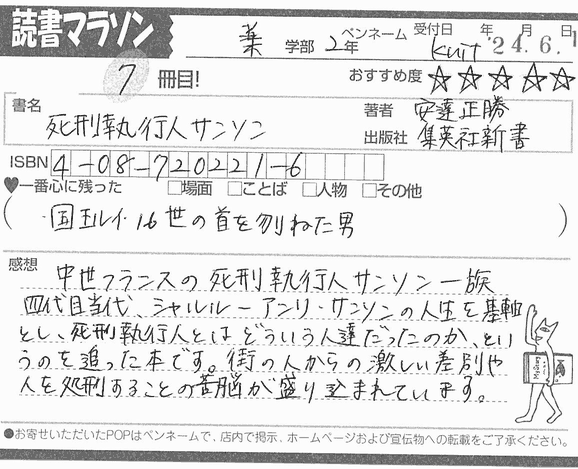 読書マラソン
薬 学部 2年 ペンネーム kuit 受付日 '24.6.1 年 月 日
7 冊目! おすすめ度 ☆☆☆☆☆
書名 死刑執行人サンソン
著者 安達正勝
出版社 集英社新書
ISBN 4-08-720221-6
♥一番心に残った □場面 □ことば □人物 □その他
(・国王ルイ16世の首を刎ねた男)
感想 中世フランスの死刑執行人サンソン一族
四代目当代、シャルル－アンリ・サンソンの人生を基軸
とし、死刑執行人とはどういう人達だったのか、とい
うのを追った本です。街の人からの激しい差別や
人を処刑することの苦脳が盛り込まれています。
●お寄せいただいたPOPはペンネームで、店内で掲示、ホームページおよび宣伝物への転載をご了承ください。